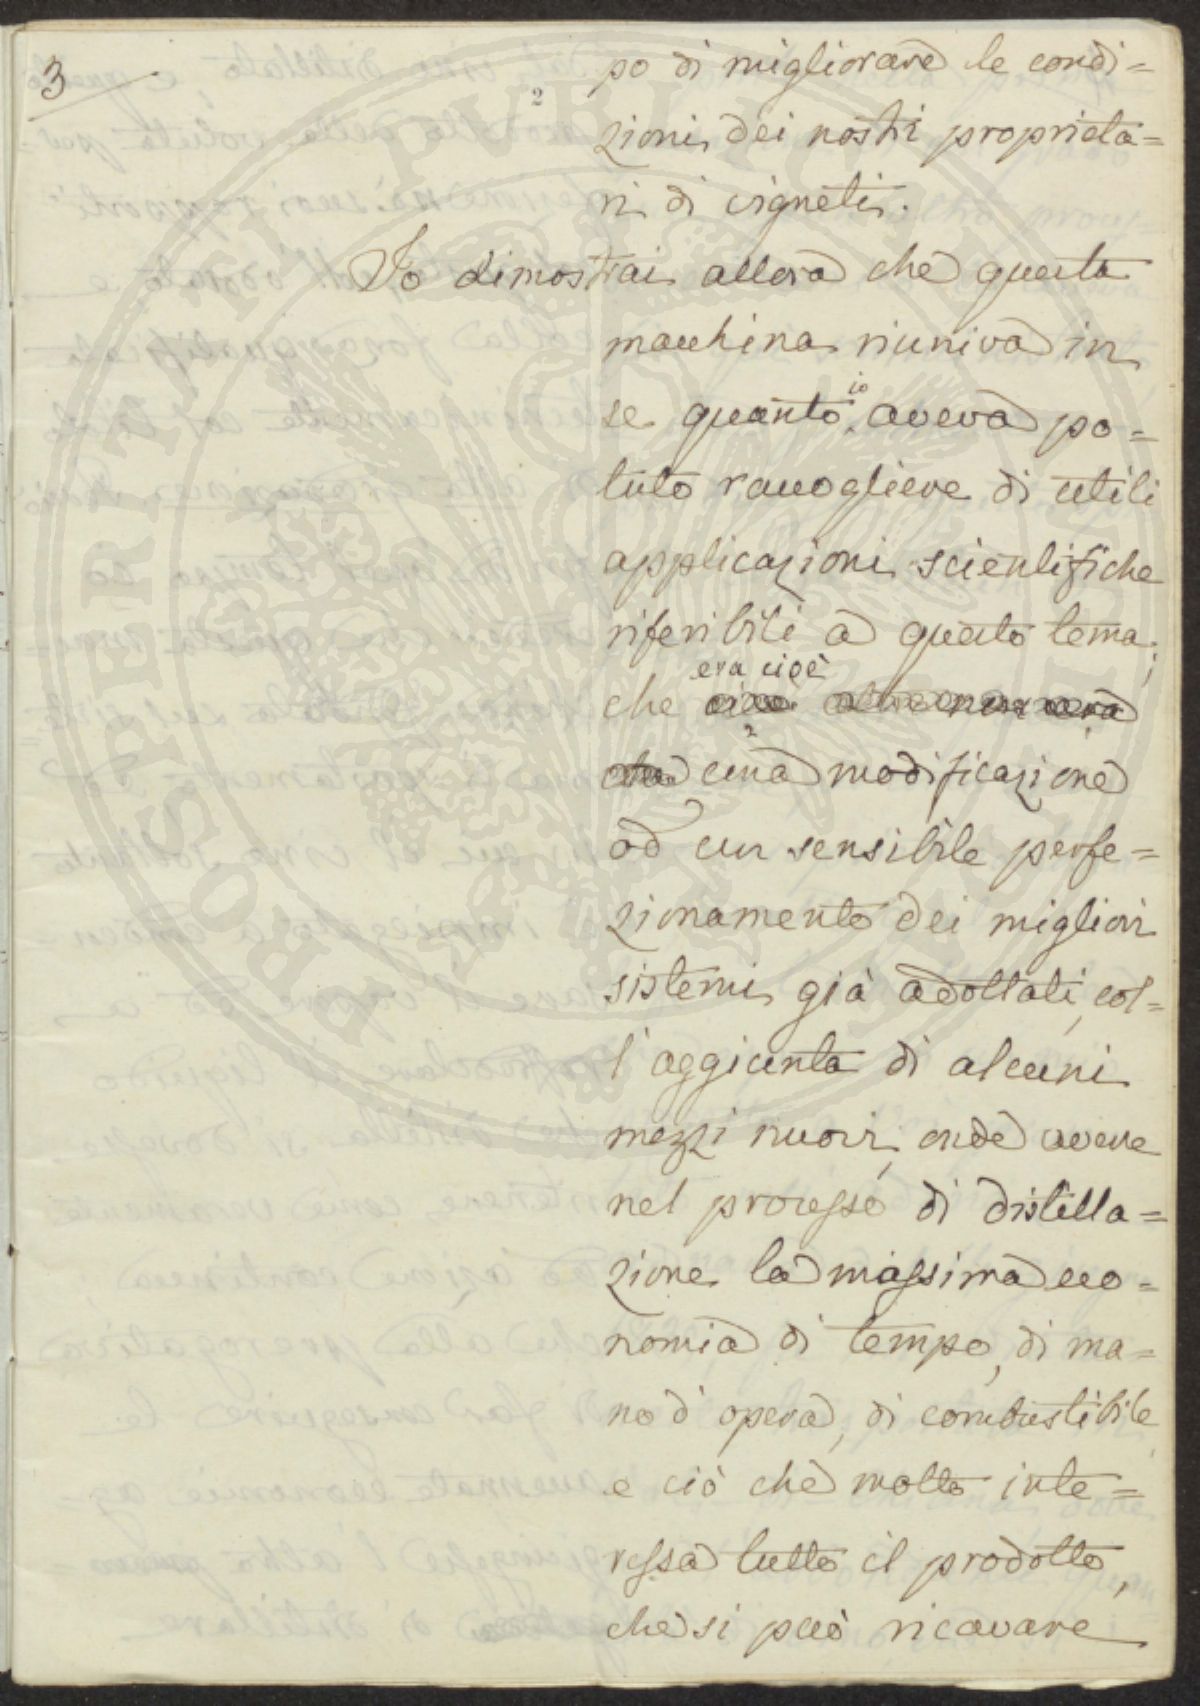 3
2
po di migliorare le condi=
zioni dei nostri proprieta=
ri di vigneti.
Io dimostrai allora che questa
macchina riuniva in
se quanto io aveva po=
tuto raccogliere di utili
applicazioni scientifiche
riferibili a questo tema;
era cioè
che
una modificazione
od un sensibile perfe=
zionamento dei migliori
sistemi già adottati, col=
l'aggiunta di alcuni
mezzi nuovi, onde avere
nel processo di distilla=
zione la massima eco=
nomia di tempo, di ma=
no d'opera, di combustibile
e ciò che molto inte=
ressa tutto il prodotto,
che si può ricavare
PROSPERITATI PUBLICAE